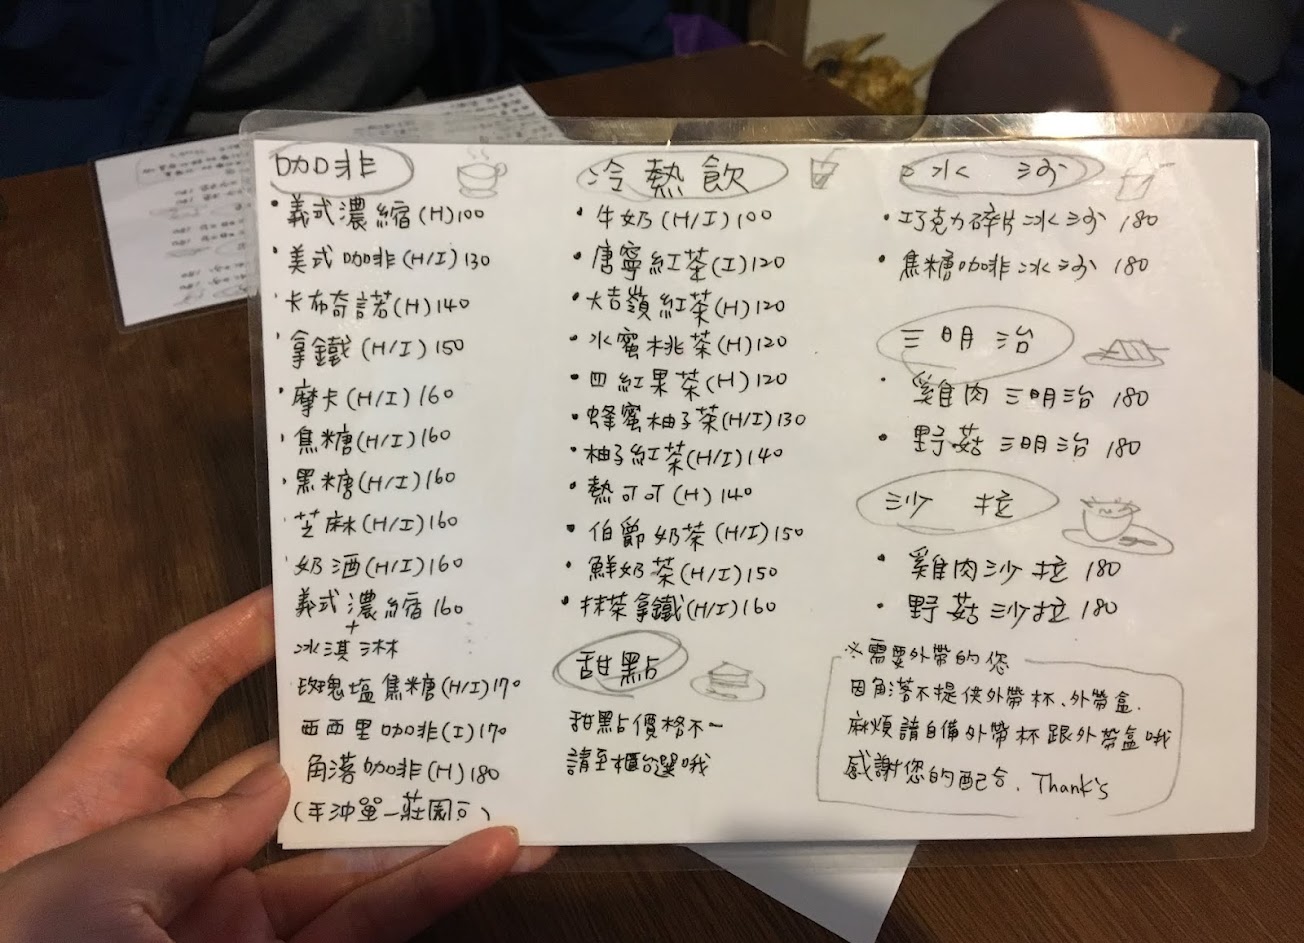 咖啡
義式濃縮(H)100
美式咖啡(H/I)130
卡布奇諾(H)140
拿鐵(H/I)150
摩卡(H/I)160
焦糖(H/I)160
黑糖(H/I)160
芝麻(H/I)160
奶酒(H/I)160
義式濃縮160
+
冰淇淋
玫瑰塩焦糖(H/I)170
西西里咖啡(I)170
角落咖啡(H)180
(手沖單一莊園)
冷熱飲
牛奶(H/I)100
唐寧紅茶(I)120
大吉嶺紅茶(H)120
水蜜桃茶(H)120
四紅果茶(H)120
蜂蜜柚子茶(H/I)130
柚子紅茶(H/I)140
熱可可(H)140
伯爵奶茶(H/I)150
鮮奶茶(H/I)150
抹茶拿鐵(H/I)160
甜點
甜點價格不一
請至櫃台選哦
冰沙
巧克力碎片冰沙 180
焦糖咖啡冰沙 180
三明治
雞肉三明治 180
野菇三明治 180
沙拉
雞肉沙拉 180
野菇沙拉 180
※需要外帶的您
因角落不提供外帶杯、外帶盒.
麻煩請自備外帶杯跟外帶盒哦
感謝您的配合. Thank's